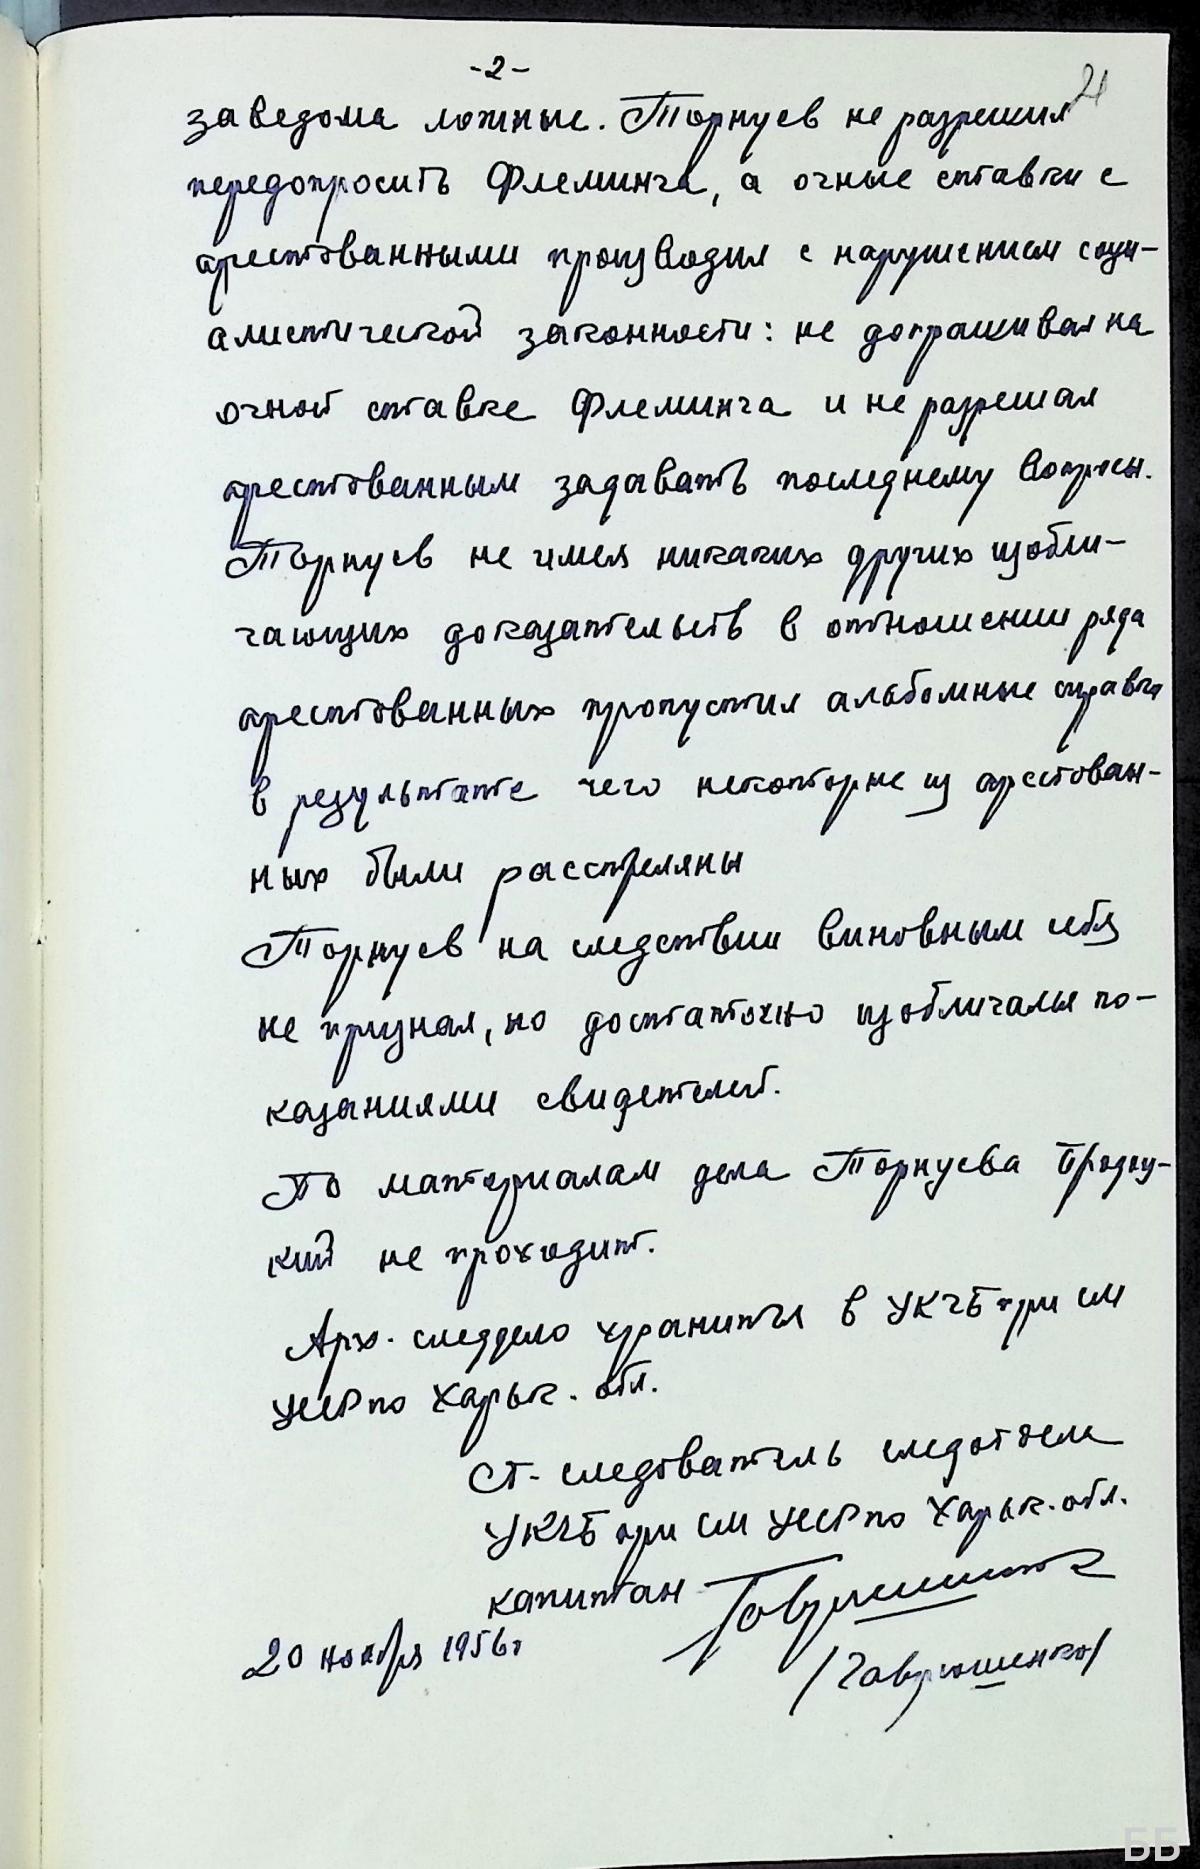 -2-
21
заведома ложные. Торнуев не разрешил
передопросить Флеминга, а очные ставки с
арестованными производил с нарушением соци-
алистической законности: не допрашивал на
очной ставке Флеминга и не разрешал
арестованным задавать последнему вопросы.
Торнуев не имея никаких других изобли-
чающих доказательств в отношении ряда
арестованных пропустил альбомные справки
в результате чего некоторые из арестован-
ных были расстреляны
Торнуев на следствии виновным себя
не признал, но достаточно изобличался по-
казаниями свидетелей.
По материалам дела Торнуева
кий не проходит.
Арх. следдело хранится в УКГБ при СМ
УССР по Харьк. обл.
Ст. следователь следотдела
УКГБ при СМ УССР по Харьк. обл.
капитан
/Гаврюшенко/
20 ноября 1956г
ББ